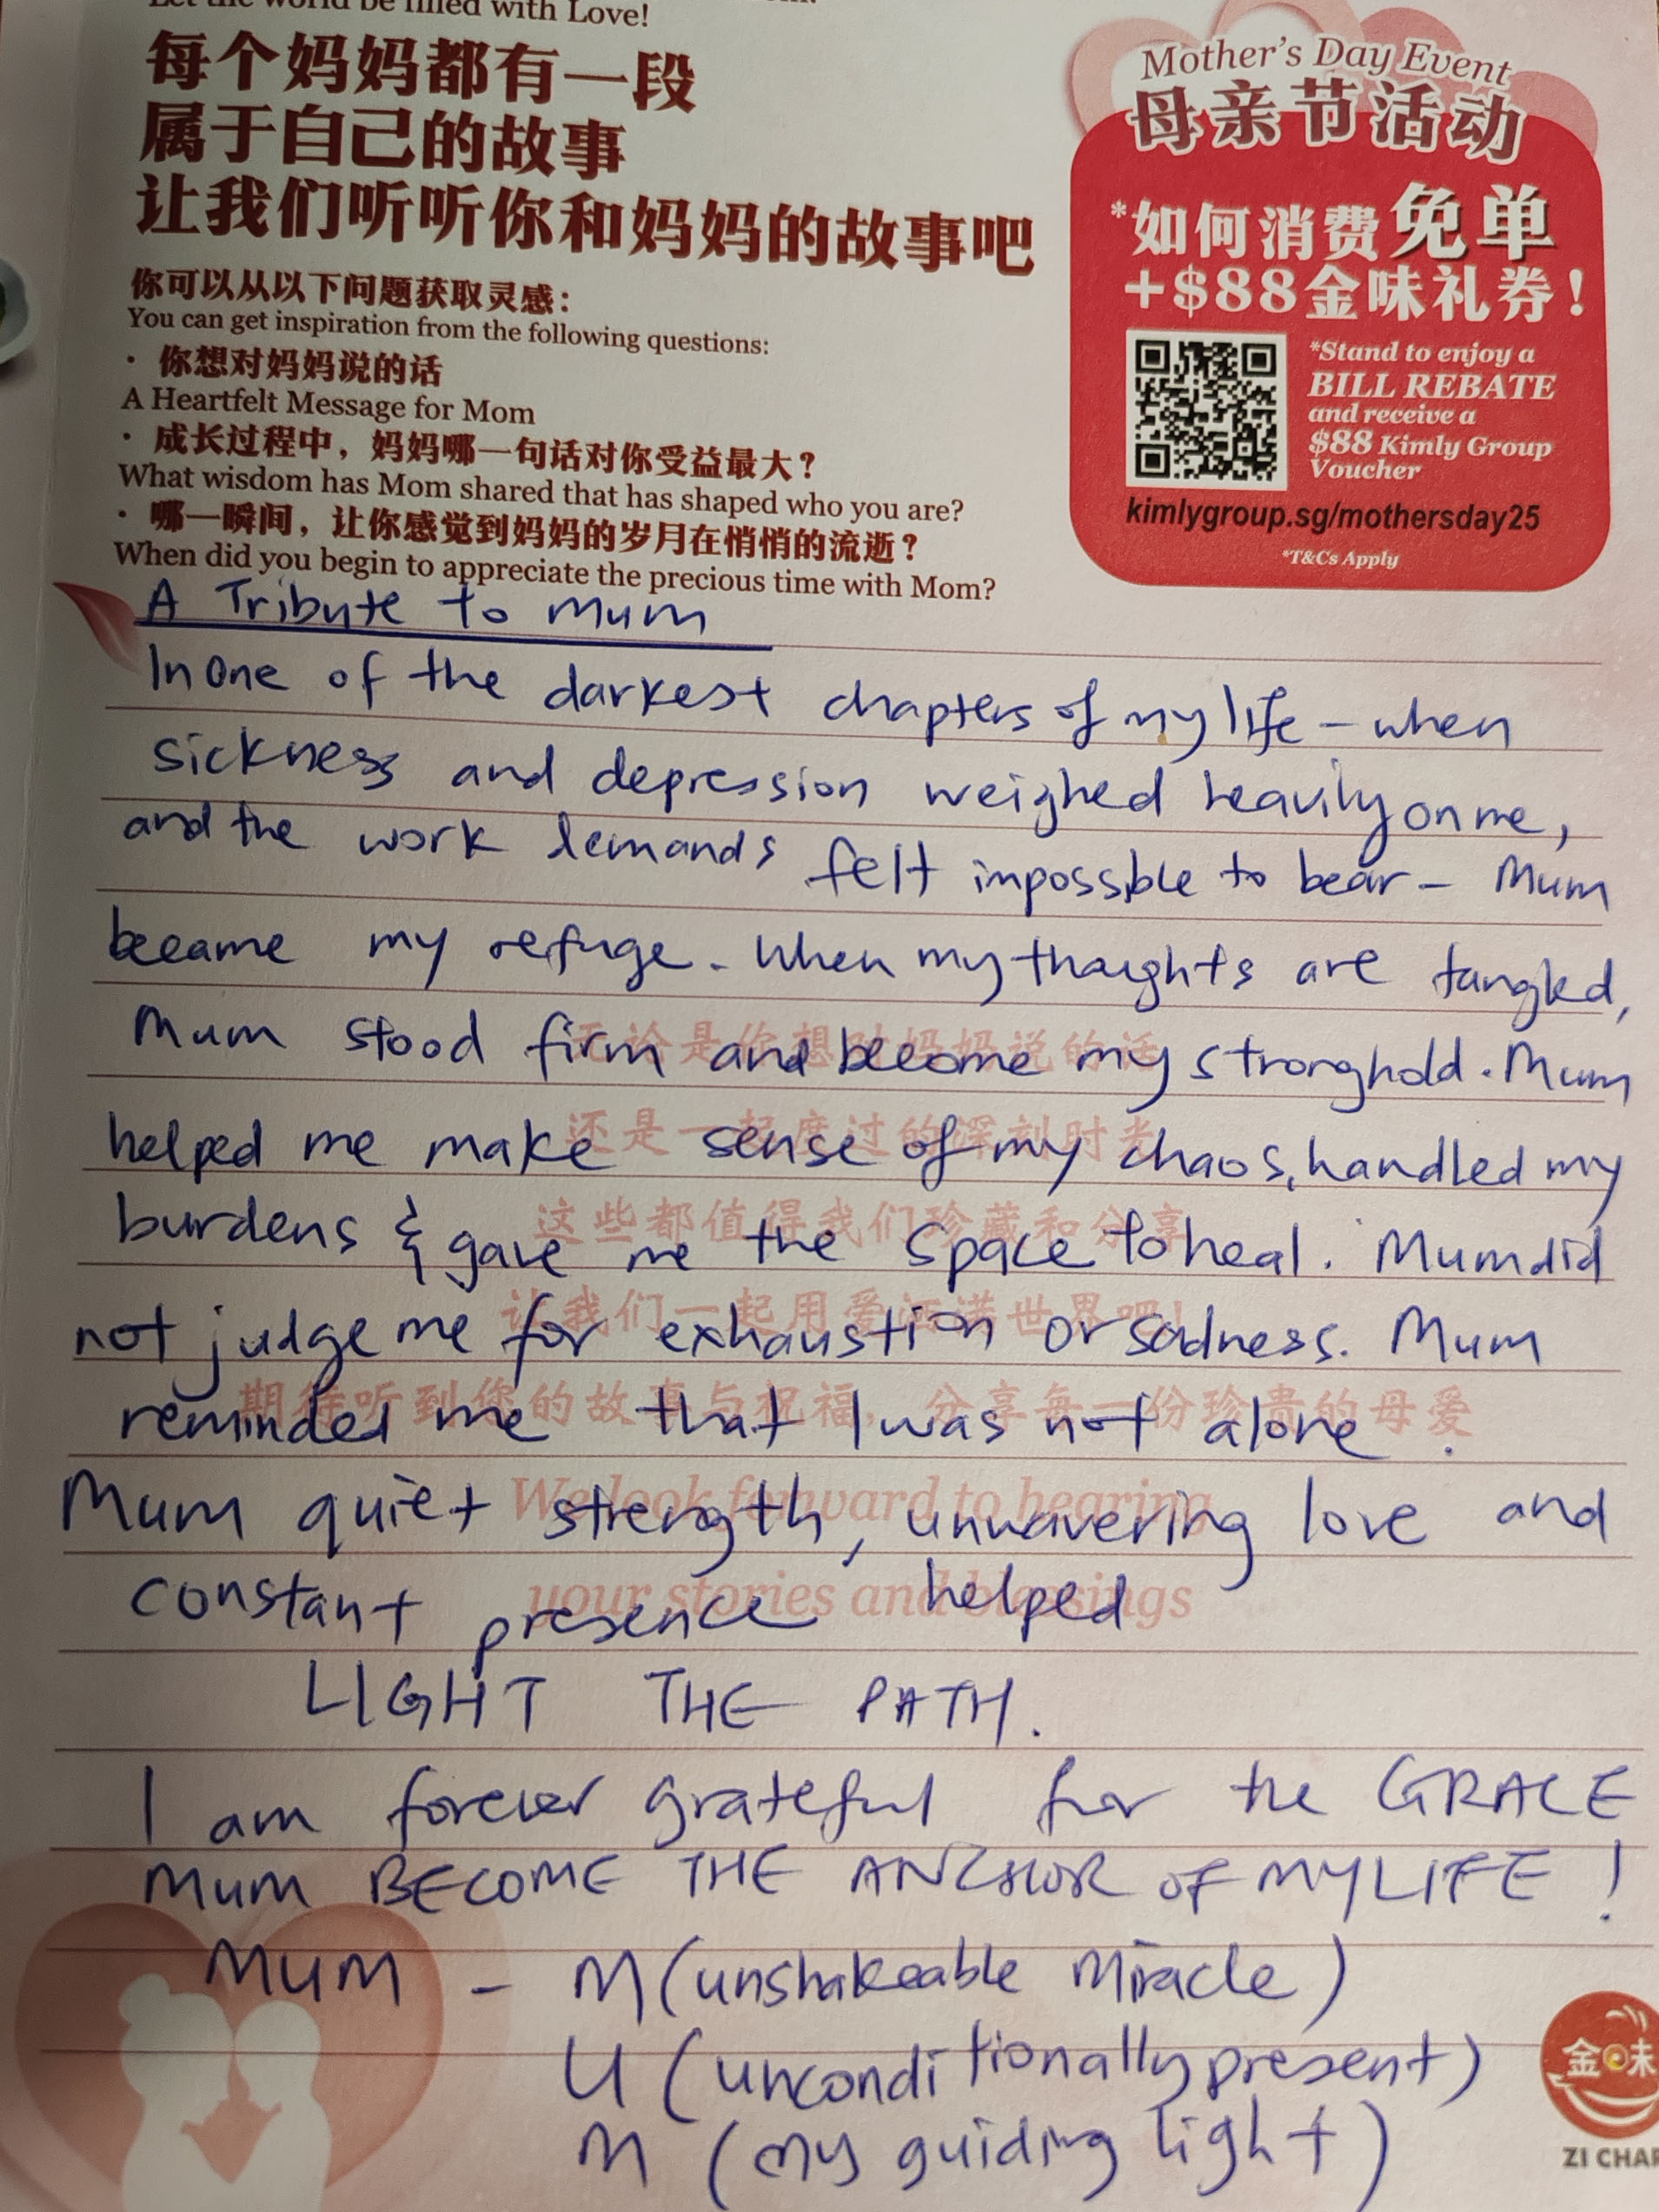 Let the world be filled with Love!
每个妈妈都有一段
属于自己的故事
让我们听听你和妈妈的故事吧
你可以从以下问题获取灵感：
You can get inspiration from the following questions:
· 你想对妈妈说的话
A Heartfelt Message for Mom
· 成长过程中，妈妈哪一句话对你受益最大？
What wisdom has Mom shared that has shaped who you are?
· 哪一瞬间，让你感觉到妈妈的岁月在悄悄的流逝？
When did you begin to appreciate the precious time with Mom?
Mother's Day Event
母亲节活动
*如何消费免单
+$88金味礼券！
*Stand to enjoy a
BILL REBATE
and receive a
$88 Kimly Group
Voucher
kimlygroup.sg/mothersday25
*T&Cs Apply
A Tribute to Mum
In one of the darkest chapters of my life – when
sickness and depression weighed heavily on me,
and the work demands felt impossible to bear – Mum
became my refuge. When my thoughts are tangled,
Mum stood firm and become my stronghold. Mum
helped me make sense of my chaos, handled my
burdens & gave me the space to heal. Mum did
not judge me for exhaustion or sadness. Mum
reminded me that I was not alone.
Mum quiet strength, unwavering love and
constant presence helped
LIGHT THE PATH.
I am forever grateful for the GRACE
Mum BECOME THE ANCHOR OF MY LIFE!
MUM – M (unshakeable Miracle)
U (unconditionally present)
M (my guiding light)
无论是你想对妈妈说的话
还是一起度过的深刻时光
这些都值得我们珍藏和分享
让我们一起用爱洒满世界吧！
期待听到您的故事与祝福，分享每一份珍贵的母爱
We look forward to hearing
your stories and blessings
金味
ZI CHAR